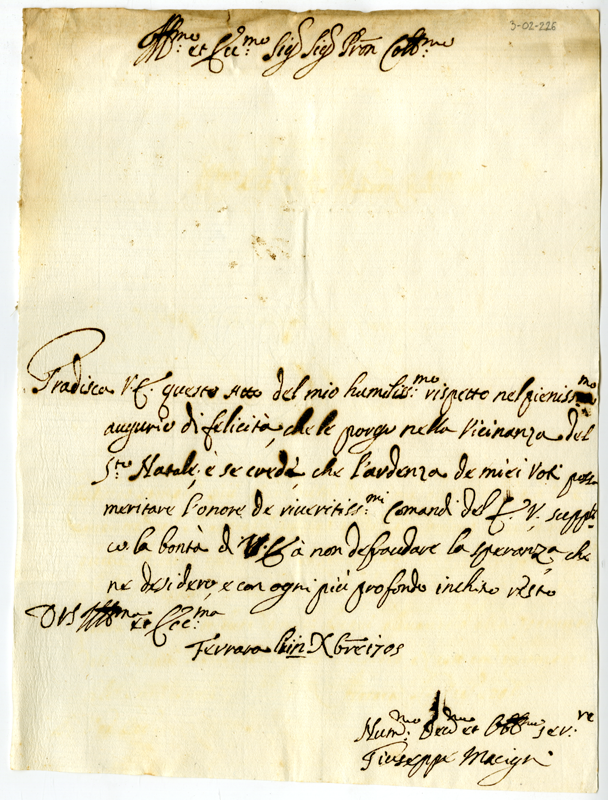 3-02-226
Ill:mo et Ecc:mo Sig:r Sig:r Pron Coll:mo
Gradisca V. E. questo atto del mio humiliss:mo rispetto nel pieniss:mo
augurio di felicità, che le porgo nella vicinanza del
S:to Natale; e se crede, che l'ardenza de miei voti possa
meritare l'onore de riveritiss:mi comandi del E. V., suppli
co la bontà di V. E. à non defraudare la speranza, che
ne desidero, e con ogni più profondo inchino resto
D V S Ill:ma et Ecc:ma
Ferrara Xbre 1705
Hum:mo Dev:mo et Obb:mo ser:re
Giuseppe Macigni